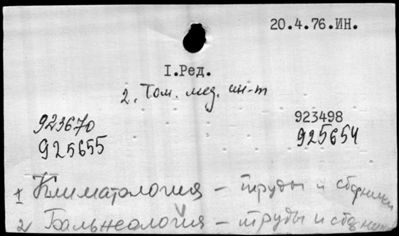 20.4.76.ИН.
I.Ред.
2. Том. мед. ин-т
923670
923498
925655
925654
1 Климатология - труды и сборники
2 Бальнеология - труды и сборники